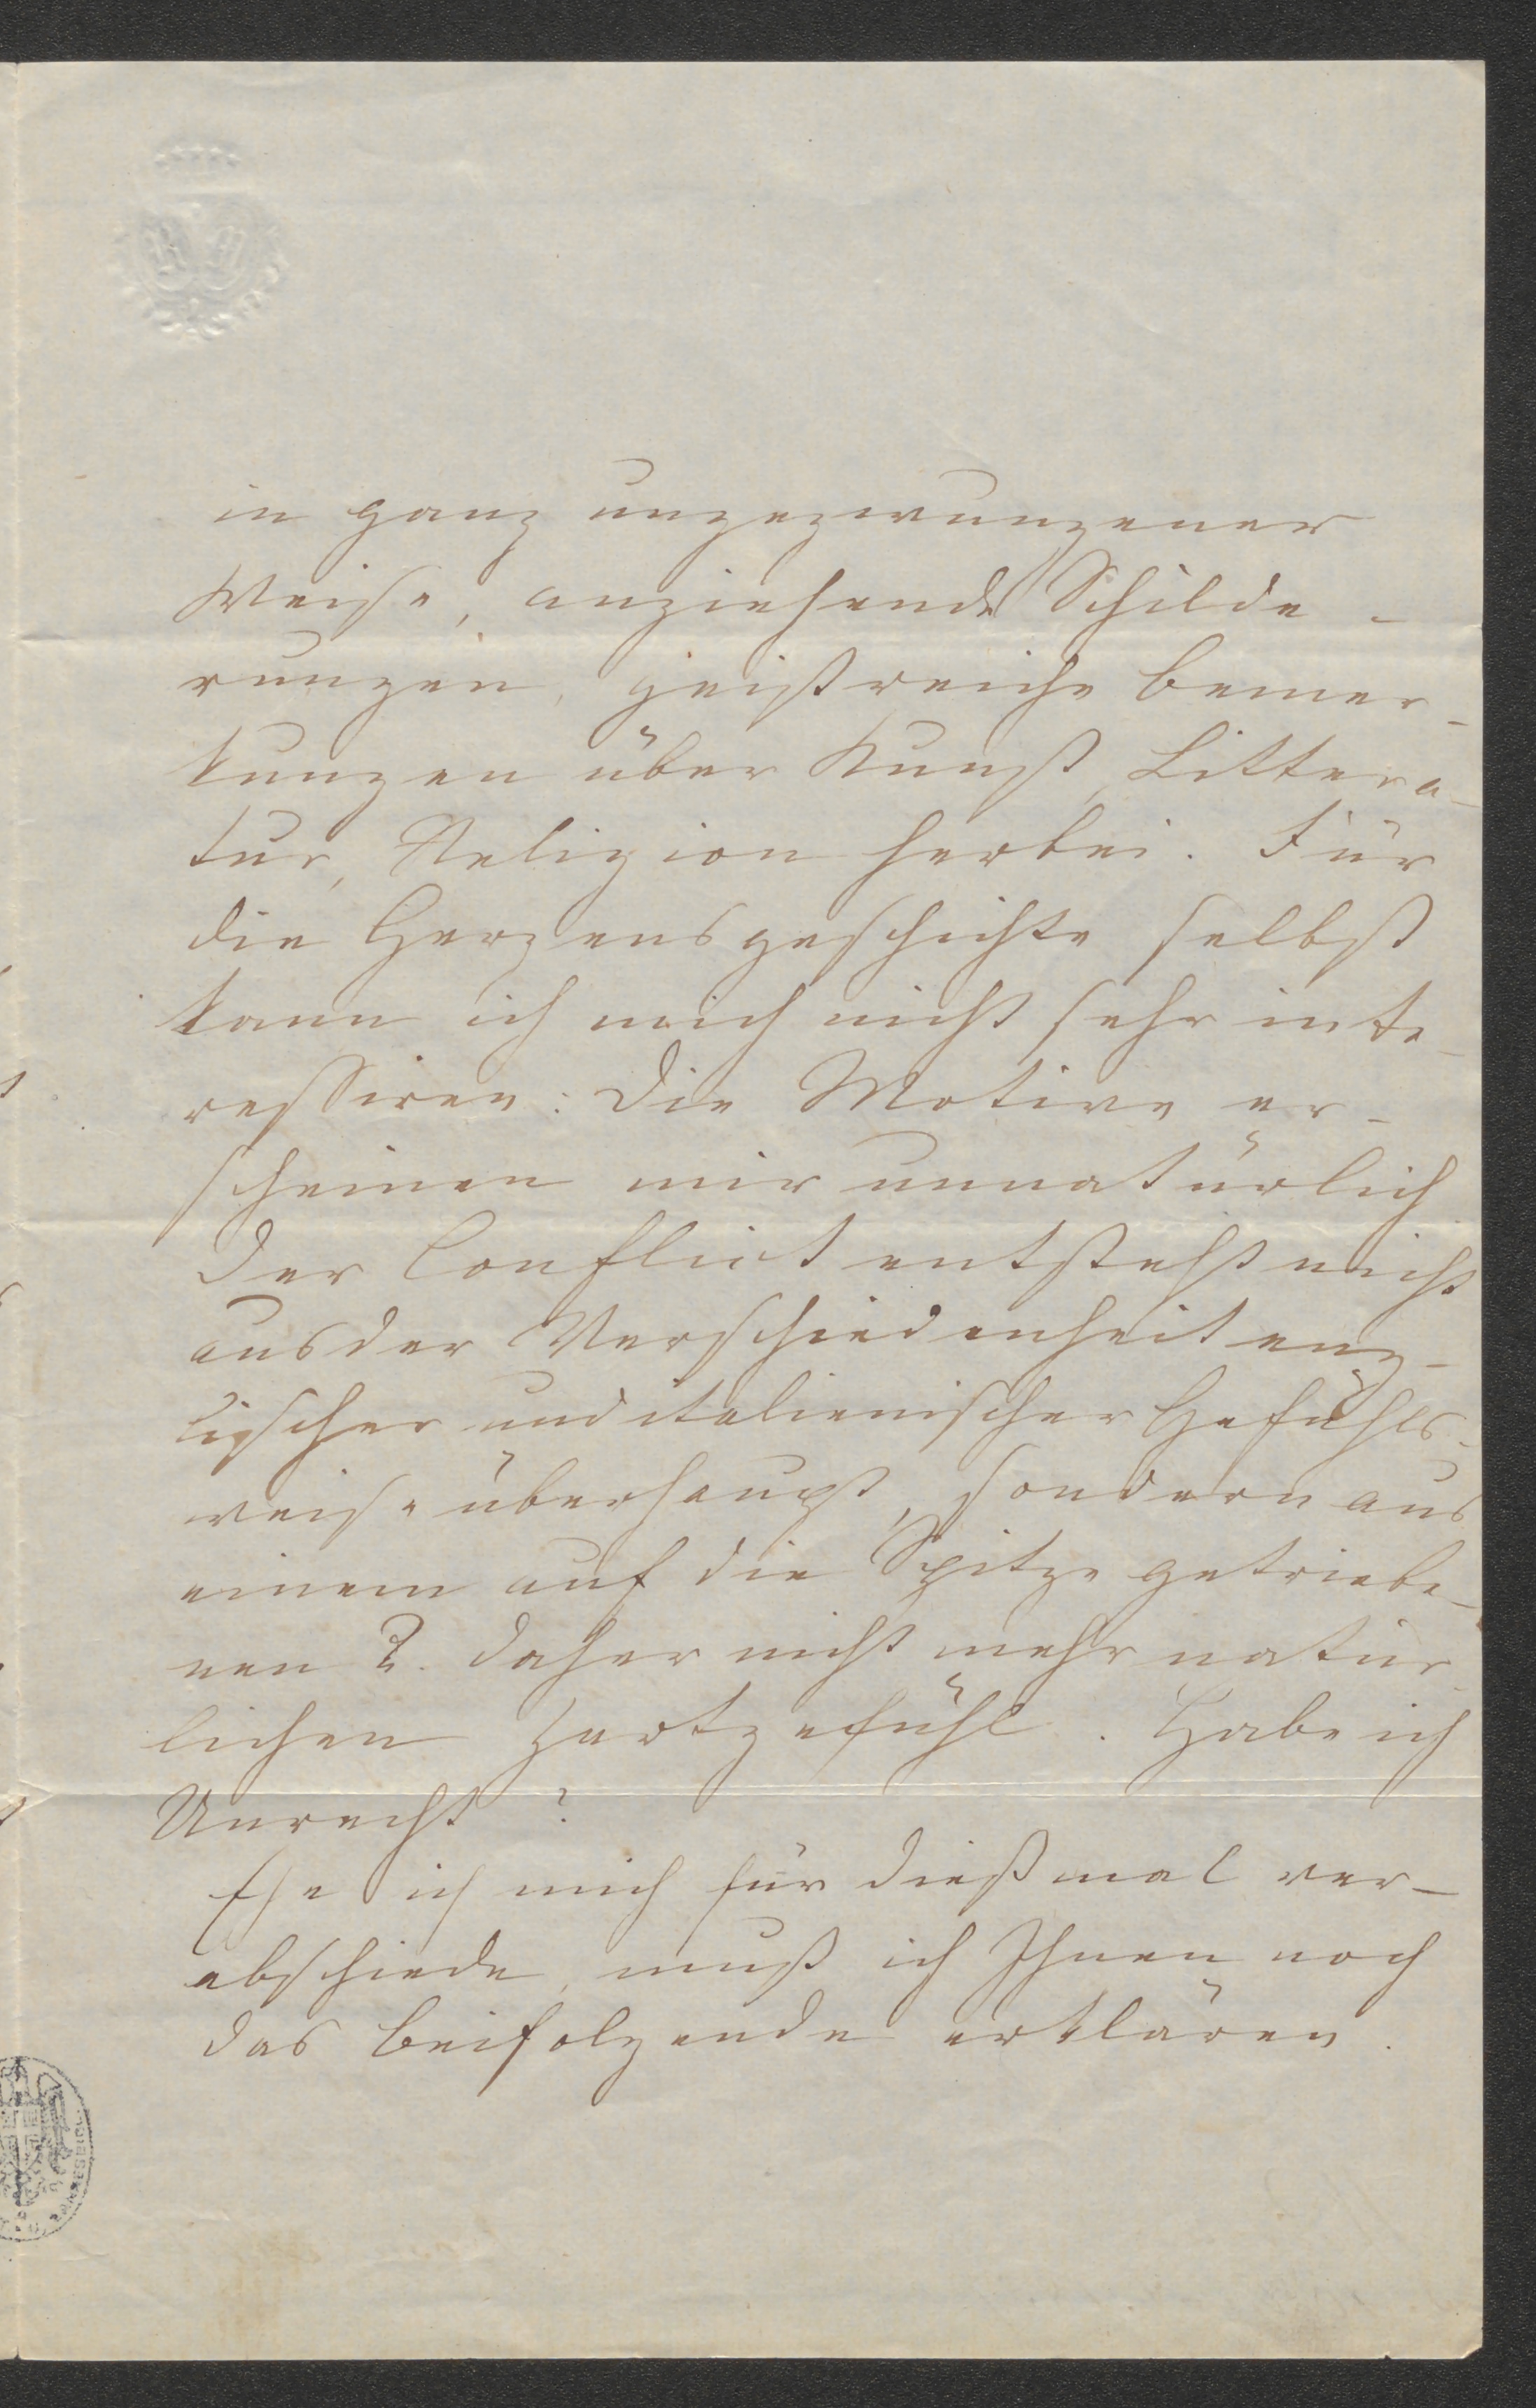 in ganz ungezwungener
Weise, anziehende Schilde-
rungen, geistreiche Bemer-
kungen über Kunst, Littera-
tur, Religion herbei. Für
die Herzensgeschichte selbst
kann ich mich nicht sehr inte-
ressiren: Die Motive er-
scheinen mir unnatürlich
Der Conflict entsteht nicht
aus der Verschiedenheit eng-
lischer und italienischer Gefühls-
weise überhaupt, sondern aus
einem auf die Spitze getriebe-
nen &. daher nicht mehr natür-
lichen Zartgefühl. Habe ich
Unrecht?
Ehe ich mich für dießmal ver-
abschiede, muß ich Ihnen noch
das Beifolgende erklären.